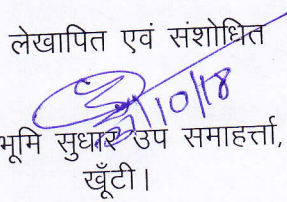 लेखापित एवं संशोधित
10/18
भूमि सुधार उप समाहर्त्ता,
खूँटी।